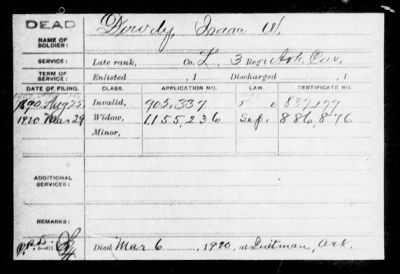 DEAD
NAME OF SOLDIER:
Dowdy, Isaac W.
SERVICE:
Late rank, Co. L, 3 Reg't Ark. Cav,
TERM OF SERVICE:
Enlisted , 1 Discharged , 1
DATE OF FILING. CLASS. APPLICATION NO. LAW. CERTIFICATE NO.
1890 Aug 25 Invalid, 903,337 837,177
1920 Mar 29 Widow, 1,155,236 886,876
Minor,
ADDITIONAL SERVICES:
REMARKS:
Died Mar 6 , 1920, at Quitman, Ark.